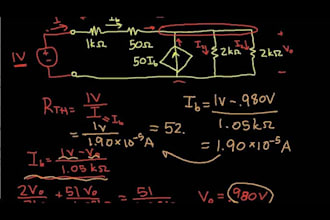 I I_b I_x I_x
1V 1kΩ 50Ω 50I_b 2kΩ 2kΩ V_o
R_TH = 1V / I = I_b
= 1V / 1.90×10⁻⁵A = 52.
I_b = 1V-.980V / 1.05kΩ
= 1.90×10⁻⁵A
I_b = 1V-V_o / 1.05kΩ
2V_o + 51V_o = 51
V_o = .980V